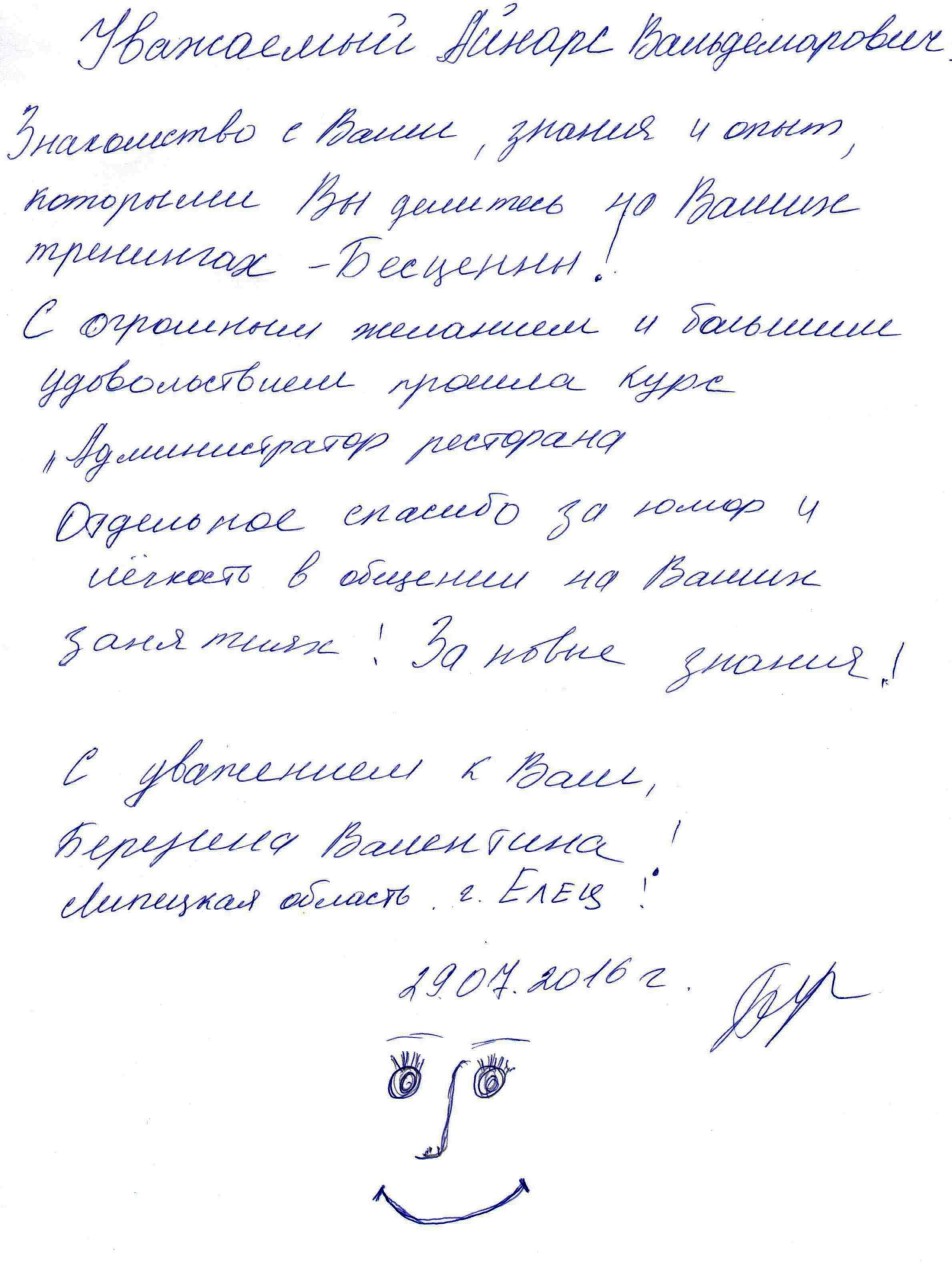 Уважаемый Айнарс Вальдемарович,
Знакомство с Вами, знания и опыт,
которыми Вы делитесь на Ваших
тренингах - Бесценны!
С огромным желанием и большим
удовольствием прошла курс
„Администратор ресторана
Отдельное спасибо за юмор и
лёгкость в общении на Ваших
занятиях! За новые знания!
С уважением к Вам,
Валентина!
Липецкая область. г. Елец!
29.07.2016 г.